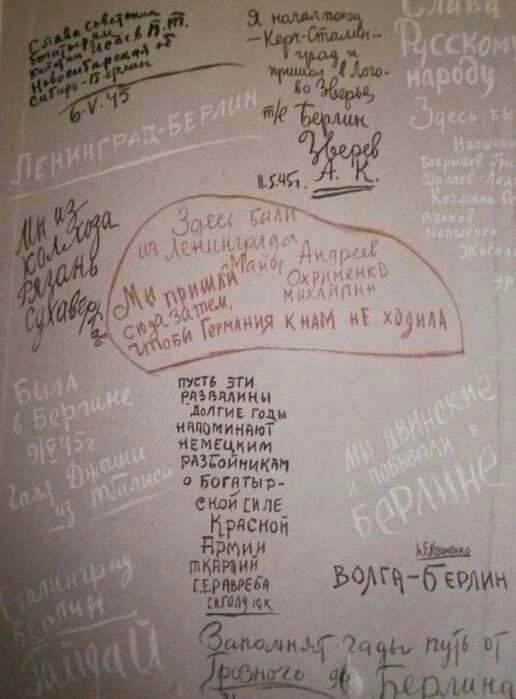 Слава советским
богатырям
капитан Исаев П.Т.
Новосибирская об
Сибирь-Берлин
6.V.45
Я начал поход
-Керч-Сталин-
град и
пришол в Лого-
во Зверье,
т/е Берлин
Зверев
А. К.
11.5.45г.
Слава
Русскому
народу
Здесь бы
Ивашкин
Шалаев
Козлина
Волков
Маршенко
Жигал
ЛЕНИНГРАД-БЕРЛИН
Мы из
колхоза
Рязань
Здесь были
из Ленинграда
Майор Андреев
Охрименко
Михайлин
Мы пришли
сюда затем,
чтобы Германия к нам не ходила
Была
в Берлине
9/V 45г.
Галя
из Тбилиси
ПУСТЬ ЭТИ
РАЗВАЛИНЫ
ДОЛГИЕ ГОДЫ
НАПОМИНАЮТ
НЕМЕЦКИМ
РАЗБОЙНИКАМ
О БОГАТЫР-
СКОЙ СИЛЕ
КРАСНОЙ
АРМИИ
МЫ ДВИНСКИЕ
И ПОБЫВАЛИ В
БЕРЛИНЕ
ВОЛГА-БЕРЛИН
Сталинград
Берлин
Гайдай
Запомнят гады путь от
Грозного до Берлина